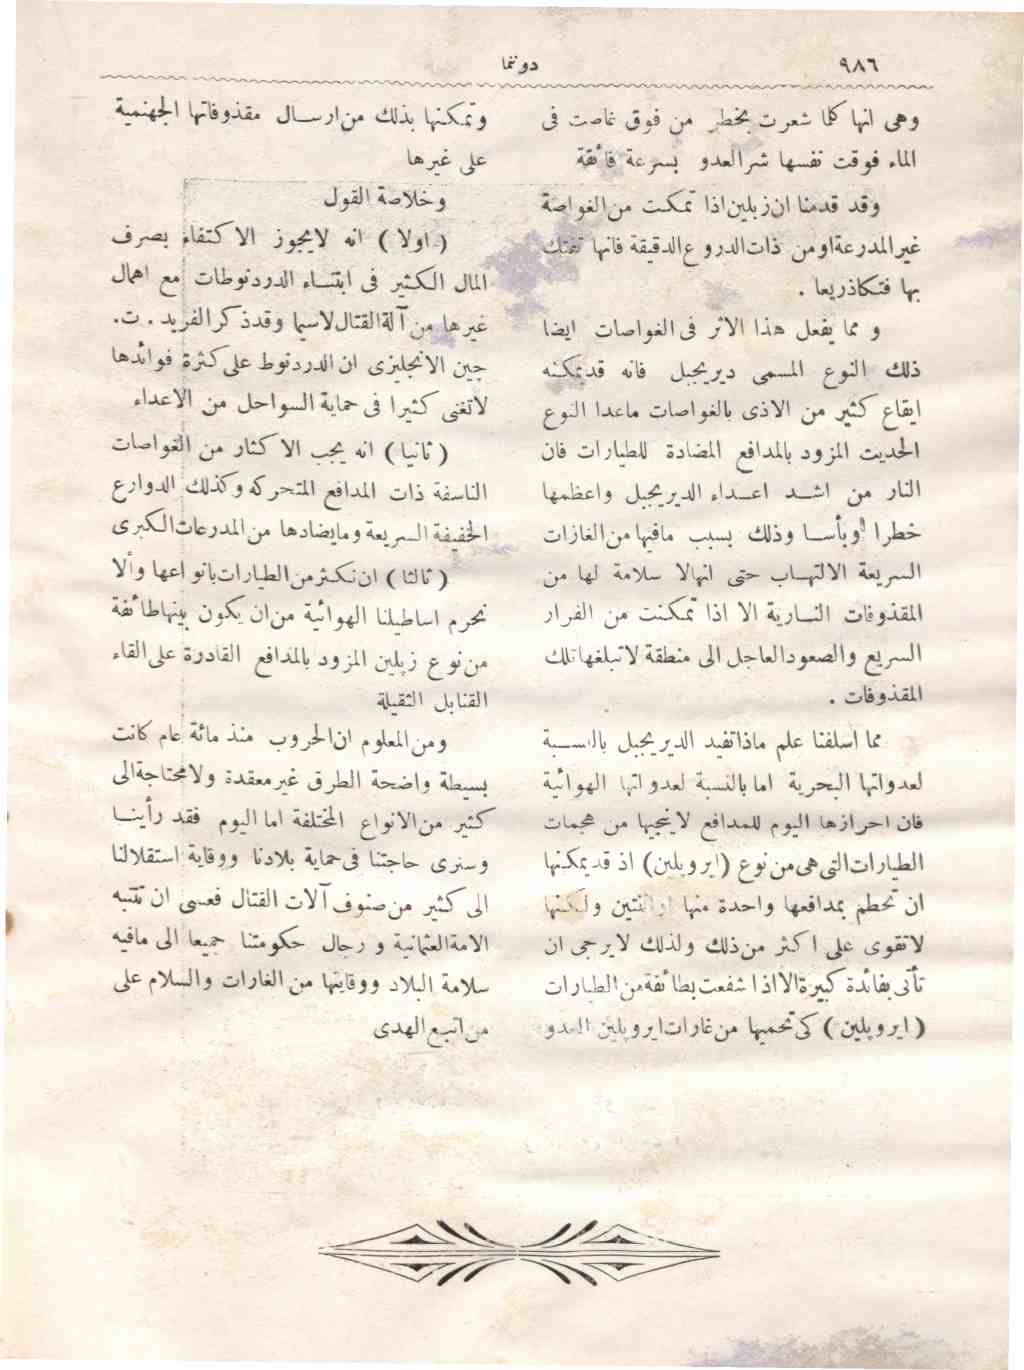 ٩٨٦
دوننما
وهى انها كلما شعرت بخطر من فوق غاصت فى
الماء فوقت نفسها شر العدو بسرعة فائقة
وقد قدمنا ان زبلين اذا تمكنت من الغواصة
غير المدرعة او من ذات الدروع الدقيقة فانها تفتك
بها فتكا ذريعا .
و مما يفعل هذا الاثر فى الغواصات ايضا
ذلك النوع المسمى ديريجبل فانه قد يمكنه
ايقاع كثير من الاذى بالغواصات ماعدا النوع
الحديث المزود بالمدافع المضادة للطيارات فان
النار من اشد اعداء الديريجبل واعظمها
خطرا وبأسا وذلك بسبب مافيها من الغازات
السريعة الالتهاب حتى انها لا سلامة لها من
المقذوفات النارية الا اذا تمكنت من الفرار
السريع والصعود العاجل الى منطقة لا تبلغها تلك
المقذوفات .
مما اسلفنا علم ماذا تفيد الديريجبل بالنسبة
لعدواتها البحرية اما بالنسبة لعدواتها الهوائية
فان احرازها اليوم للمدافع لا ينجيها من هجمات
الطيارات التى هى من نوع (ايروپلين) اذ قد يمكنها
ان تحطم بمدافعها واحدة منها او اثنتين ولكنها
لاتقوى على اكثر من ذلك ولذلك لايرجى ان
تأتى بفائدة كبيرة الا اذا شفعت بطائفة من الطيارات
( ايروپلين ) كى تحميها من غارات ايروپلين العدو
وتمكنها بذلك من ارسال مقذوفاتها الجهنمية
على غيرها
وخلاصة القول
( اولا ) انه لايجوز الاكتفاء بصرف
المال الكثير فى ابتناء الدردنوطات مع اهمال
غيرها من آلة القتال لاسيما وقد ذكر الفريد . ت.
جين الانجليزى ان الدردنوط على كثرة فوائدها
لاتغنى كثيرا فى حماية السواحل من الاعداء
( ثانيا ) انه يجب الاكثار من الغواصات
الناسفة ذات المدافع المتحركه وكذلك الدوارع
الخفيفة السريعة ومايضادها من المدرعات الكبرى
( ثالثا ) ان نكثر من الطيارات بانواعها وألا
نحرم اساطيلنا الهوائية من ان يكون بينها طائفة
من نوع زپلين المزود بالمدافع القادرة على القاء
القنابل الثقيلة
ومن المعلوم ان الحروب منذ مائة عام كانت
بسيطة واضحة الطرق غير معقدة ولا محتاجة الى
كثير من الانواع المختلفة اما اليوم فقد رأينا
وسنرى حاجتنا فى حماية بلادنا ووقاية استقلالنا
الى كثير من صنوف آلات القتال فعسى ان تتنبه
الامة العثمانية و رجال حكومتنا جميعا الى مافيه
سلامة البلاد ووقايتها من الغارات والسلام على
من اتبع الهدى